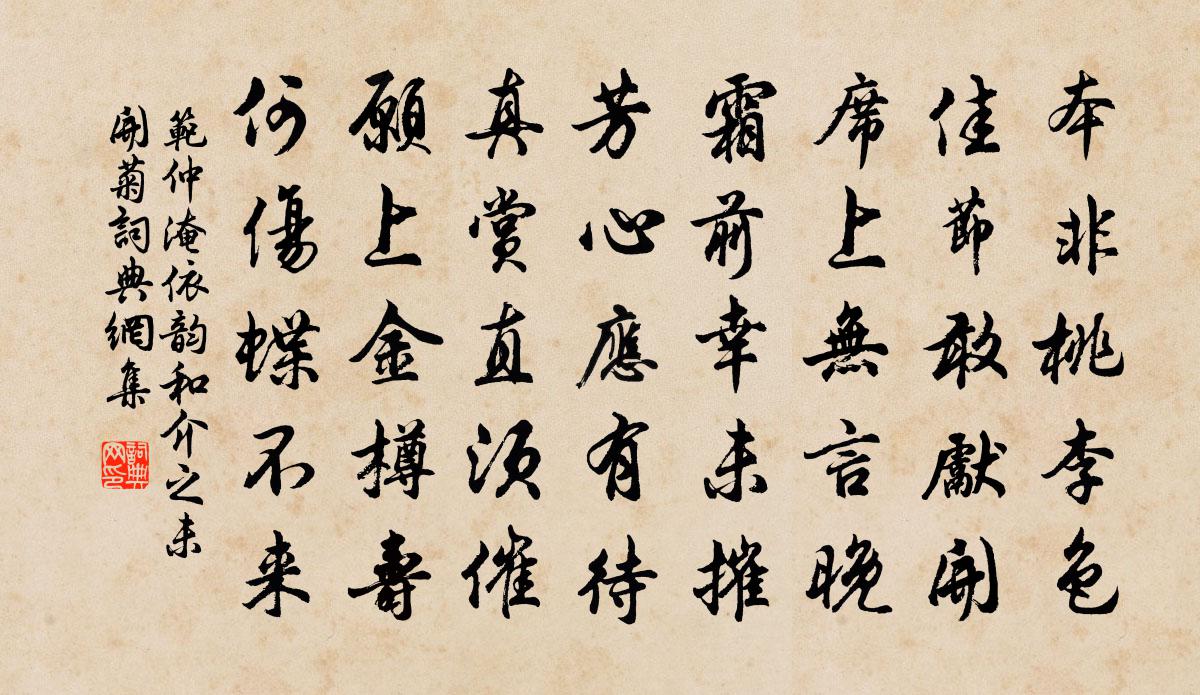 本非桃李色
佳節敢獻開
席上無言晚
霜前幸未摧
芳心應有待
真賞直須催
願上金樽壽
何傷蝶不来
範仲淹依韵和介之未
開菊詞典網集
詞典网印